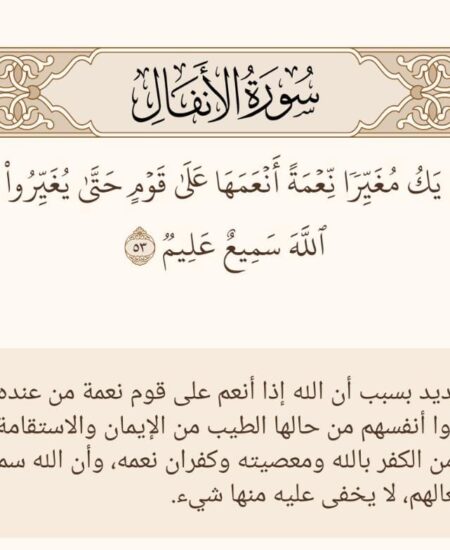 سُورَةُ الأَنفَالِ
يَكُ مُغَيِّرٗا نِّعۡمَةً أَنۡعَمَهَا عَلَىٰ قَوۡمٍ حَتَّىٰ يُغَيِّرُواْ
ٱللَّهَ سَمِيعٌ عَلِيمٞ ٥٣
ديد بسبب أن الله إذا أنعم على قوم نعمة من عنده
وا أنفسهم من حالها الطيب من الإيمان والاستقامة
من الكفر بالله ومعصيته وكفران نعمه، وأن الله سم
عالهم، لا يخفى عليه منها شيء.